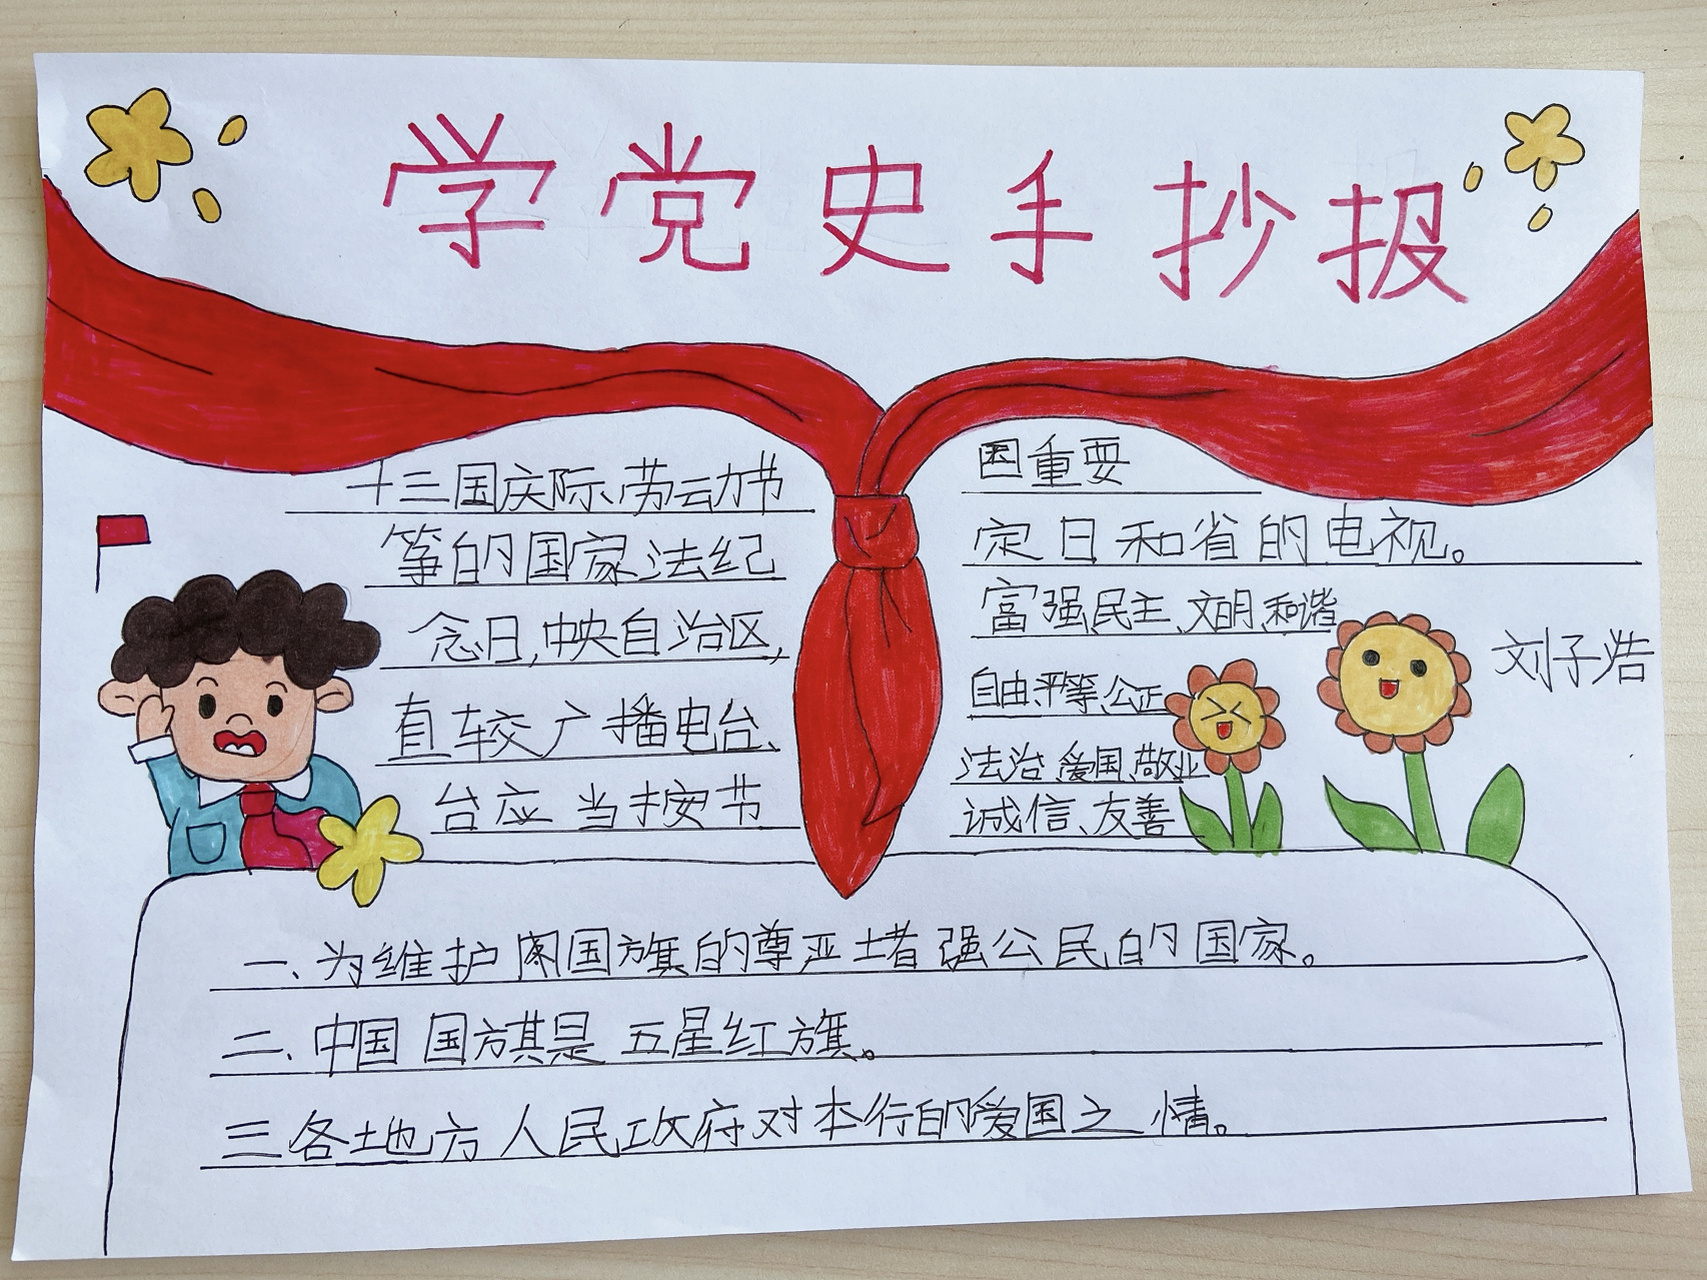 学党史手抄报
十三国庆际、劳动节
等的国家法纪
念日,中央自治区,
直较广播电台、
台应当按节
国重要
定日和省的电视。
富强民主、文明、和谐
自由、平等、公正
法治、爱国、敬业
诚信、友善
刘子浩
一、为维护国旗的尊严堵强公民的国家。
二、中国国旗是五星红旗。
三各地方人民政府对本行的爱国之情。